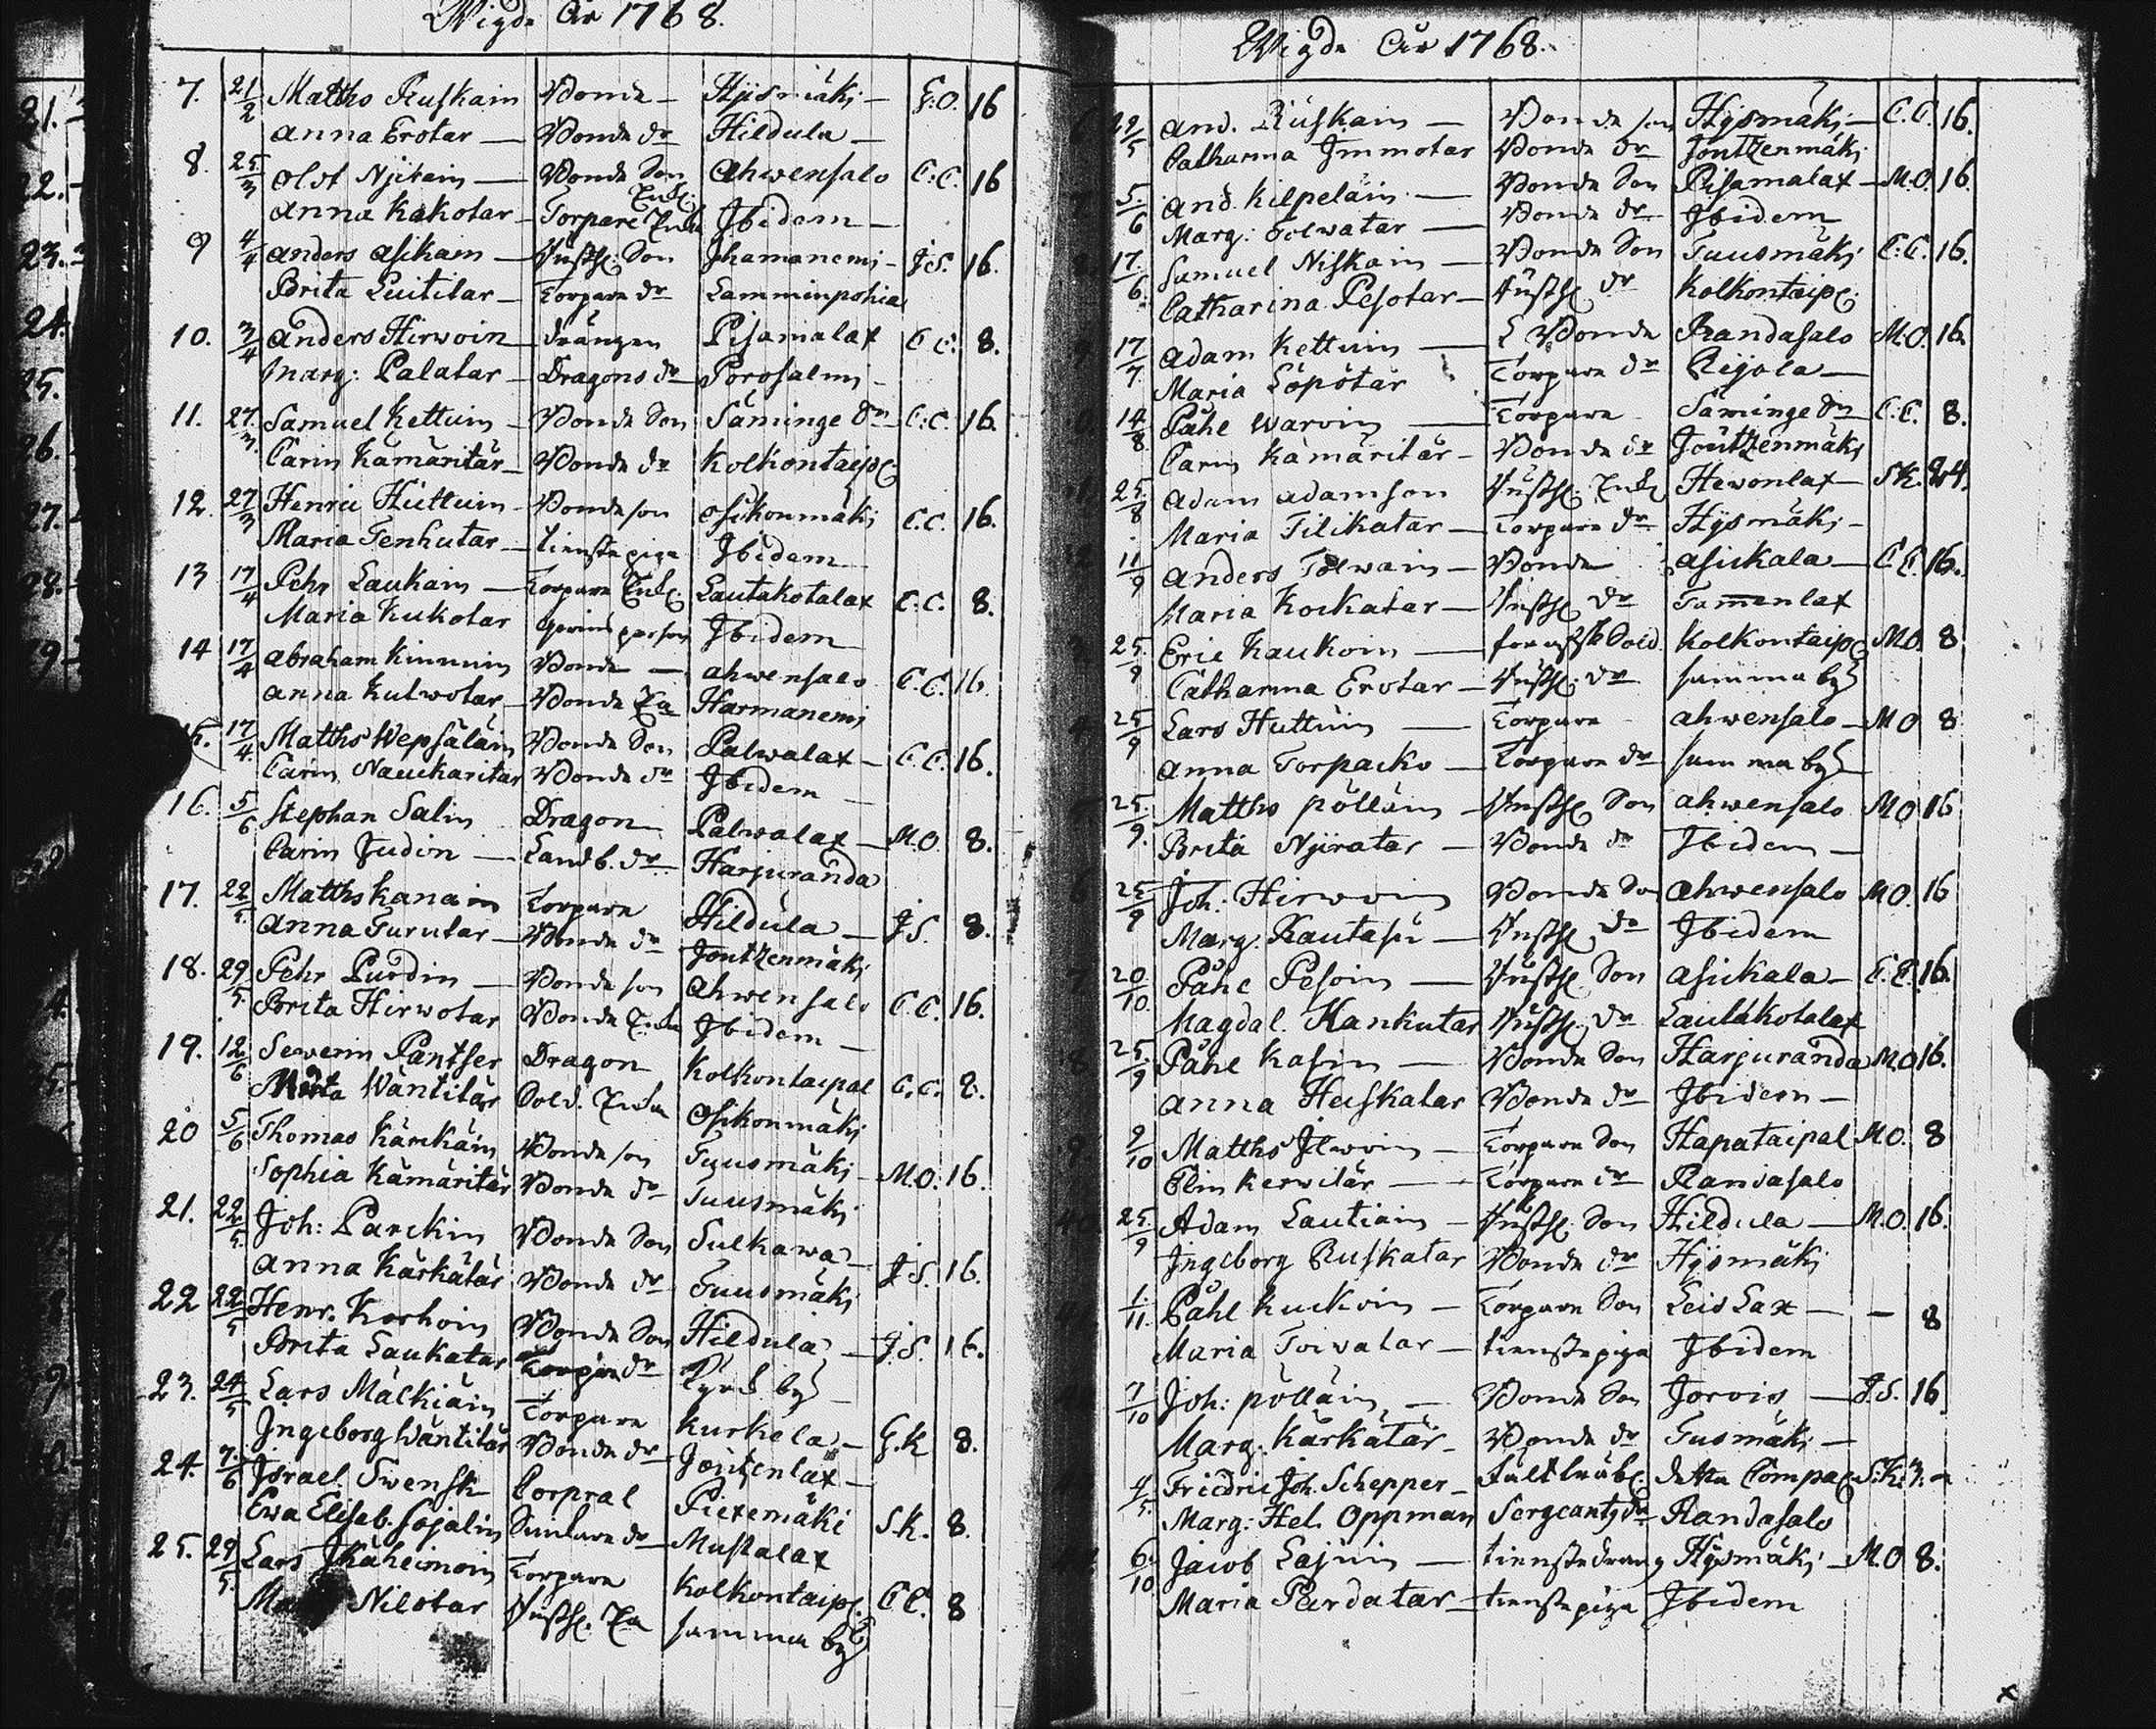 Wigde År 1768.
7. 21/2 Matths Ruskain Bonde Hysmäki G:O. 16
Anna Erotar Bonde dr Hildula
8. 25/3 Olof Nyitain Bonde Son Ahwensalo C:C. 16
Enkl.
Anna Kakotar Torpare Enka Ibidem
9 4/4 Anders Asikain Inhs. Son Ihamanemi J.S. 16.
Brita Luitilar Torpare dr Lamminpohia
10. 3/4 Anders Hirwoin drängen Pisamalax C C. 8.
Marg: Palatar Dragons dr Porosalmi
11. 27/3. Samuel Kettuin Bonde Son Säminge Sn C:C. 16.
Carin Kämäritär Bonde dr Kolkontaip.
12. 27/3 Henric Huttuin Bonde son Osikonmäki C.C. 16.
Maria Tenhutar tienstepiga Ibidem
13 17/4 Pehr Laukain Torpare Enkl. Lautakotalax C.C. 8.
Maria Kukotar Ibidem
14 17/4 Abraham Kinnuin Bonde Ahwensalo C.C. 16.
Anna Kulwotar Bonde Ea Harmanemi
15. 17/4. Matths Wepsäläin Bonde Son Palwalax C.C. 16.
Carin Nauckaritar Bonde dr Ibidem
16. 5/6 Stephan Salin Dragon Palwalax M.O. 8.
Carin Judin Landb. dr Harjuranda
17. 22/5. Matths Kanain Torpare Hildula J.S. 8.
Anna Turutar Bonde dr Joutzenmäki
18. 29/5. Pehr Purdin Bonde son Ahwensalo C.C. 16.
Brita Hirwotar Bonde Enka Ibidem
19. 12/6 Sewerin Pantser Dragon Kolkontaipal C.C. 8.
Märta Wäntitär Sold. Enka Osikonmäki
20 5/6 Thomas Kärckäin Bonde son Tuusmäki M.O. 16.
Sophia Kämäritär Bonde dr Tuusmäki
21. 22/5. Joh: Parckin Bonde Son Sulkawa J.S. 16.
Anna Kärkätär Bonde dr Tuusmäki
22 22/5 Henr. Korhoin Bonde Son Hildula J.S. 16.
Brita Laukatar Torpare dr Kyrk by
23. 24/5 Lars Mälkiäin Torpare Kurkela G.K 8.
Ingeborg Wäntitär Bonde dr Joutzenlax
24. 7./6 Israel Swensk Corpral Piexemäki S.K. 8.
Ewa Elisab. Sojalin dr Mustalax
25. 29/5. Lars Ikäheimoin Torpare Kolkontaip. C C. 8
Nilotar Inhs. Ea samma by
Wigde År 1768.
29/5 And. Ruskain Bonde son Hysmäki C.C. 16.
Catharina Immotar Bonde dr Joutzenmäki
5./6 And. Kilpeläin Bonde Son Pisamalax M.O. 16.
Marg: Tolwatar Bonde dr Ibidem
17/6. Samuel Niskain Bonde Son Tuusmäki C.C. 16.
Catharina Pesotar Inhs. dr Kolkontaip.
17/7. Adam Kettuin Bonde Randasalo M.O. 16.
Maria Löpötär Torpare dr Rijola
14/8 Påhl Warvin Torpare Säminge Sn C.C. 8.
Carin Kämäritär Bonde dr Joutzenmäki
25/8 Adam Adamson Inhs. Enkl Hewonlax S.K. 24.
Maria Tilikatar Torpare dr Hysmäki
11/9 Anders Tolwain Bonde Asickala C.C. 16.
Maria Kockatar Inhs. dr Tammenlax
25/9 Eric Kaukoin Sold Kolkontaip. M.O. 8
Catharina Erotar Inhs. dr samma by
25/9 Lars Huttuin Torpare Ahwensalo M.O 8
Anna Torpacko Torpare dr samma by
25./9. Matths Pölläin Inhs. Son Ahwensalo M.O 16
Brita Nyiratar Bonde dr Ibidem
25/9 Joh: Hirwoin Bonde Son Ahwensalo M.O. 16
Marg: Rautasu Inhs. dr Ibidem
20/10. Påhl Pesoin Inhs. Son Asickala C.C. 16.
Magdal. Kankutar Inhs. dr Lautakotalax
25./9 Påhl Kasin Bonde Son Harjuranda M.O 16.
Anna Heiskatar Bonde dr Ibidem
9/10 Matths Ilwoin Torpare Son Hapataipal M.O. 8
Elin Kerwitär Torpare dr Randasalo
25./9 Adam Lautiain Inhs. Son Hildula M.O. 16.
Ingeborg Ruskatar Bonde dr Hysmäki
1./11. Påhl Kuckoin Torpare Son Leislax - 8
Maria Toiwatar tienstepiga Ibidem
7/10 Joh: Pölläin Bonde Son Jorois J.S. 16
Marg. Kärkätär Bonde dr Tusmäki
4/5. Friedric Joh. Schepper Compa. S.K. 3.
Marg: Hel. Oppman Sergeants dr Randasalo
6./10 Jacob Lajuin tienstedräng Hysmäki M.O 8.
Maria Pardatar tienstepiga Ibidem